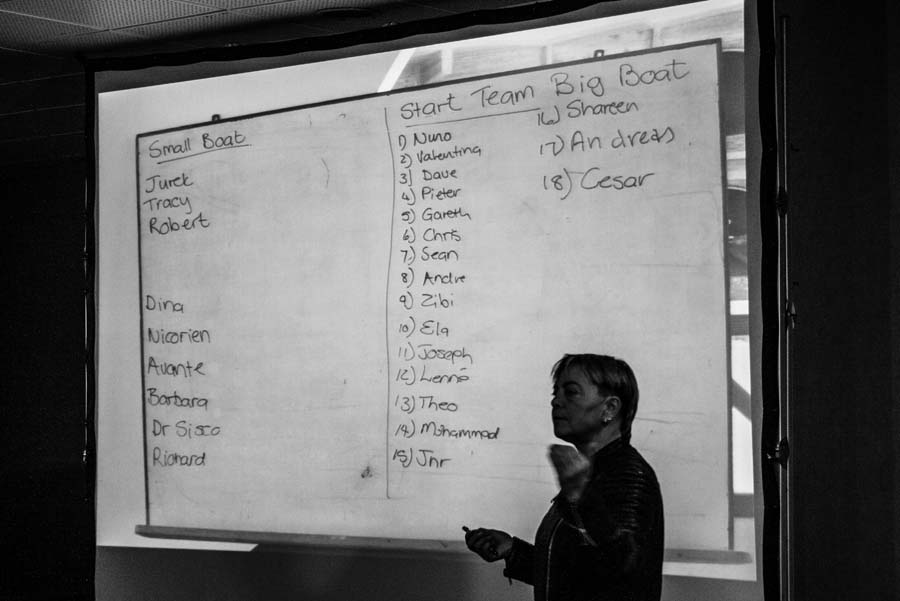 Small Boat
Jurek
Tracy
Robert
Dina
Nicorien
Avante
Barbara
Dr Sisco
Richard
Start Team Big Boat
1) Nuno
2) Valentina
3) Dave
4) Pieter
5) Gareth
6) Chris
7) Sean
8) Andre
9) Zibi
10) Ela
11) Joseph
12)
13) Theo
14) Mohammad
15) Jnr
16) Shareen
17) Andreas
18) Cesar